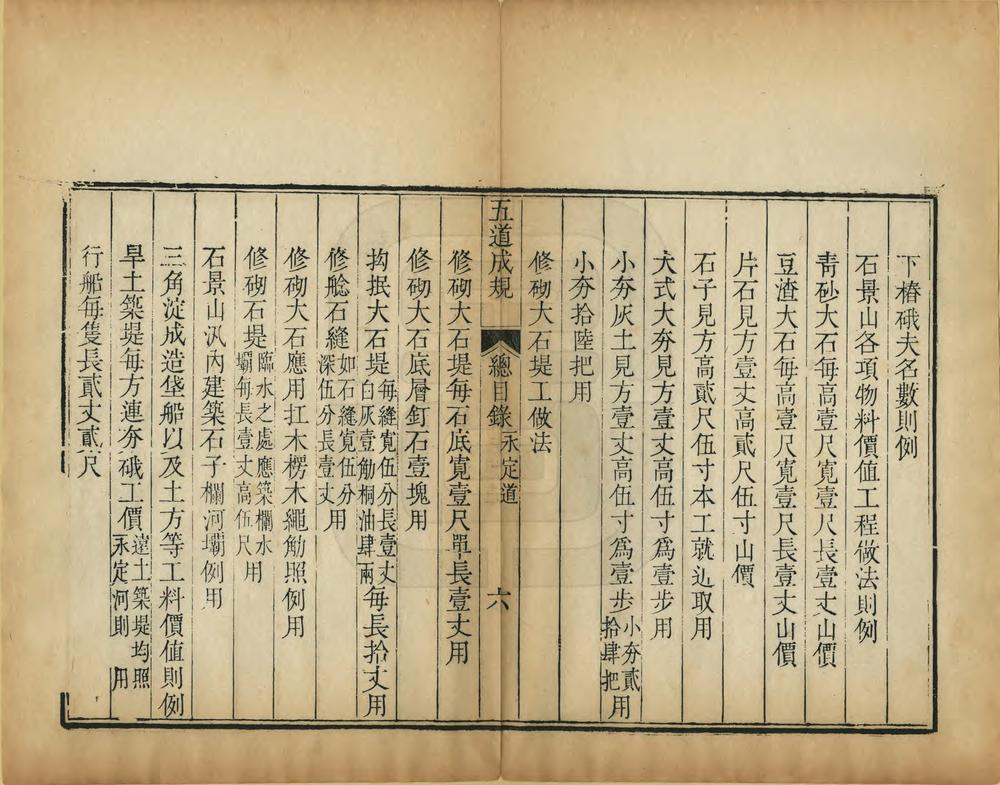 下樁硪夫名數則例
石景山各項物料價值工程做法則例
青砂大石每高壹尺寬壹尺長壹丈山價
豆渣大石每高壹尺寬壹尺長壹丈山價
片石見方壹丈高貳尺伍寸山價
石子見方高貳尺伍寸本工就近取用
大式大夯見方壹丈高伍寸爲壹步用
小夯灰土見方壹丈高伍寸爲壹步小夯貳拾肆把用
小夯拾陸把用
修砌大石堤工做法
五道成規 總目錄 永定道 六
修砌大石堤每石底寬壹尺單長壹丈用
修砌大石底層釘石壹塊用
抅抿大石堤每縫寬伍分長壹丈白灰壹觔桐油肆兩每長拾丈用
修艌石縫如石縫寬伍分深伍分長壹丈用
修砌大石應用扛木楞木繩觔照例用
修砌石堤臨水之處應築欄水壩每長壹丈高伍尺用
石景山汛內建築石子欄河壩例用
三角淀成造垡船以及土方等工料價值則例
旱土築堤每方連夯硪工價遠土築堤均照永定河則用
行船每隻長貳丈貳尺